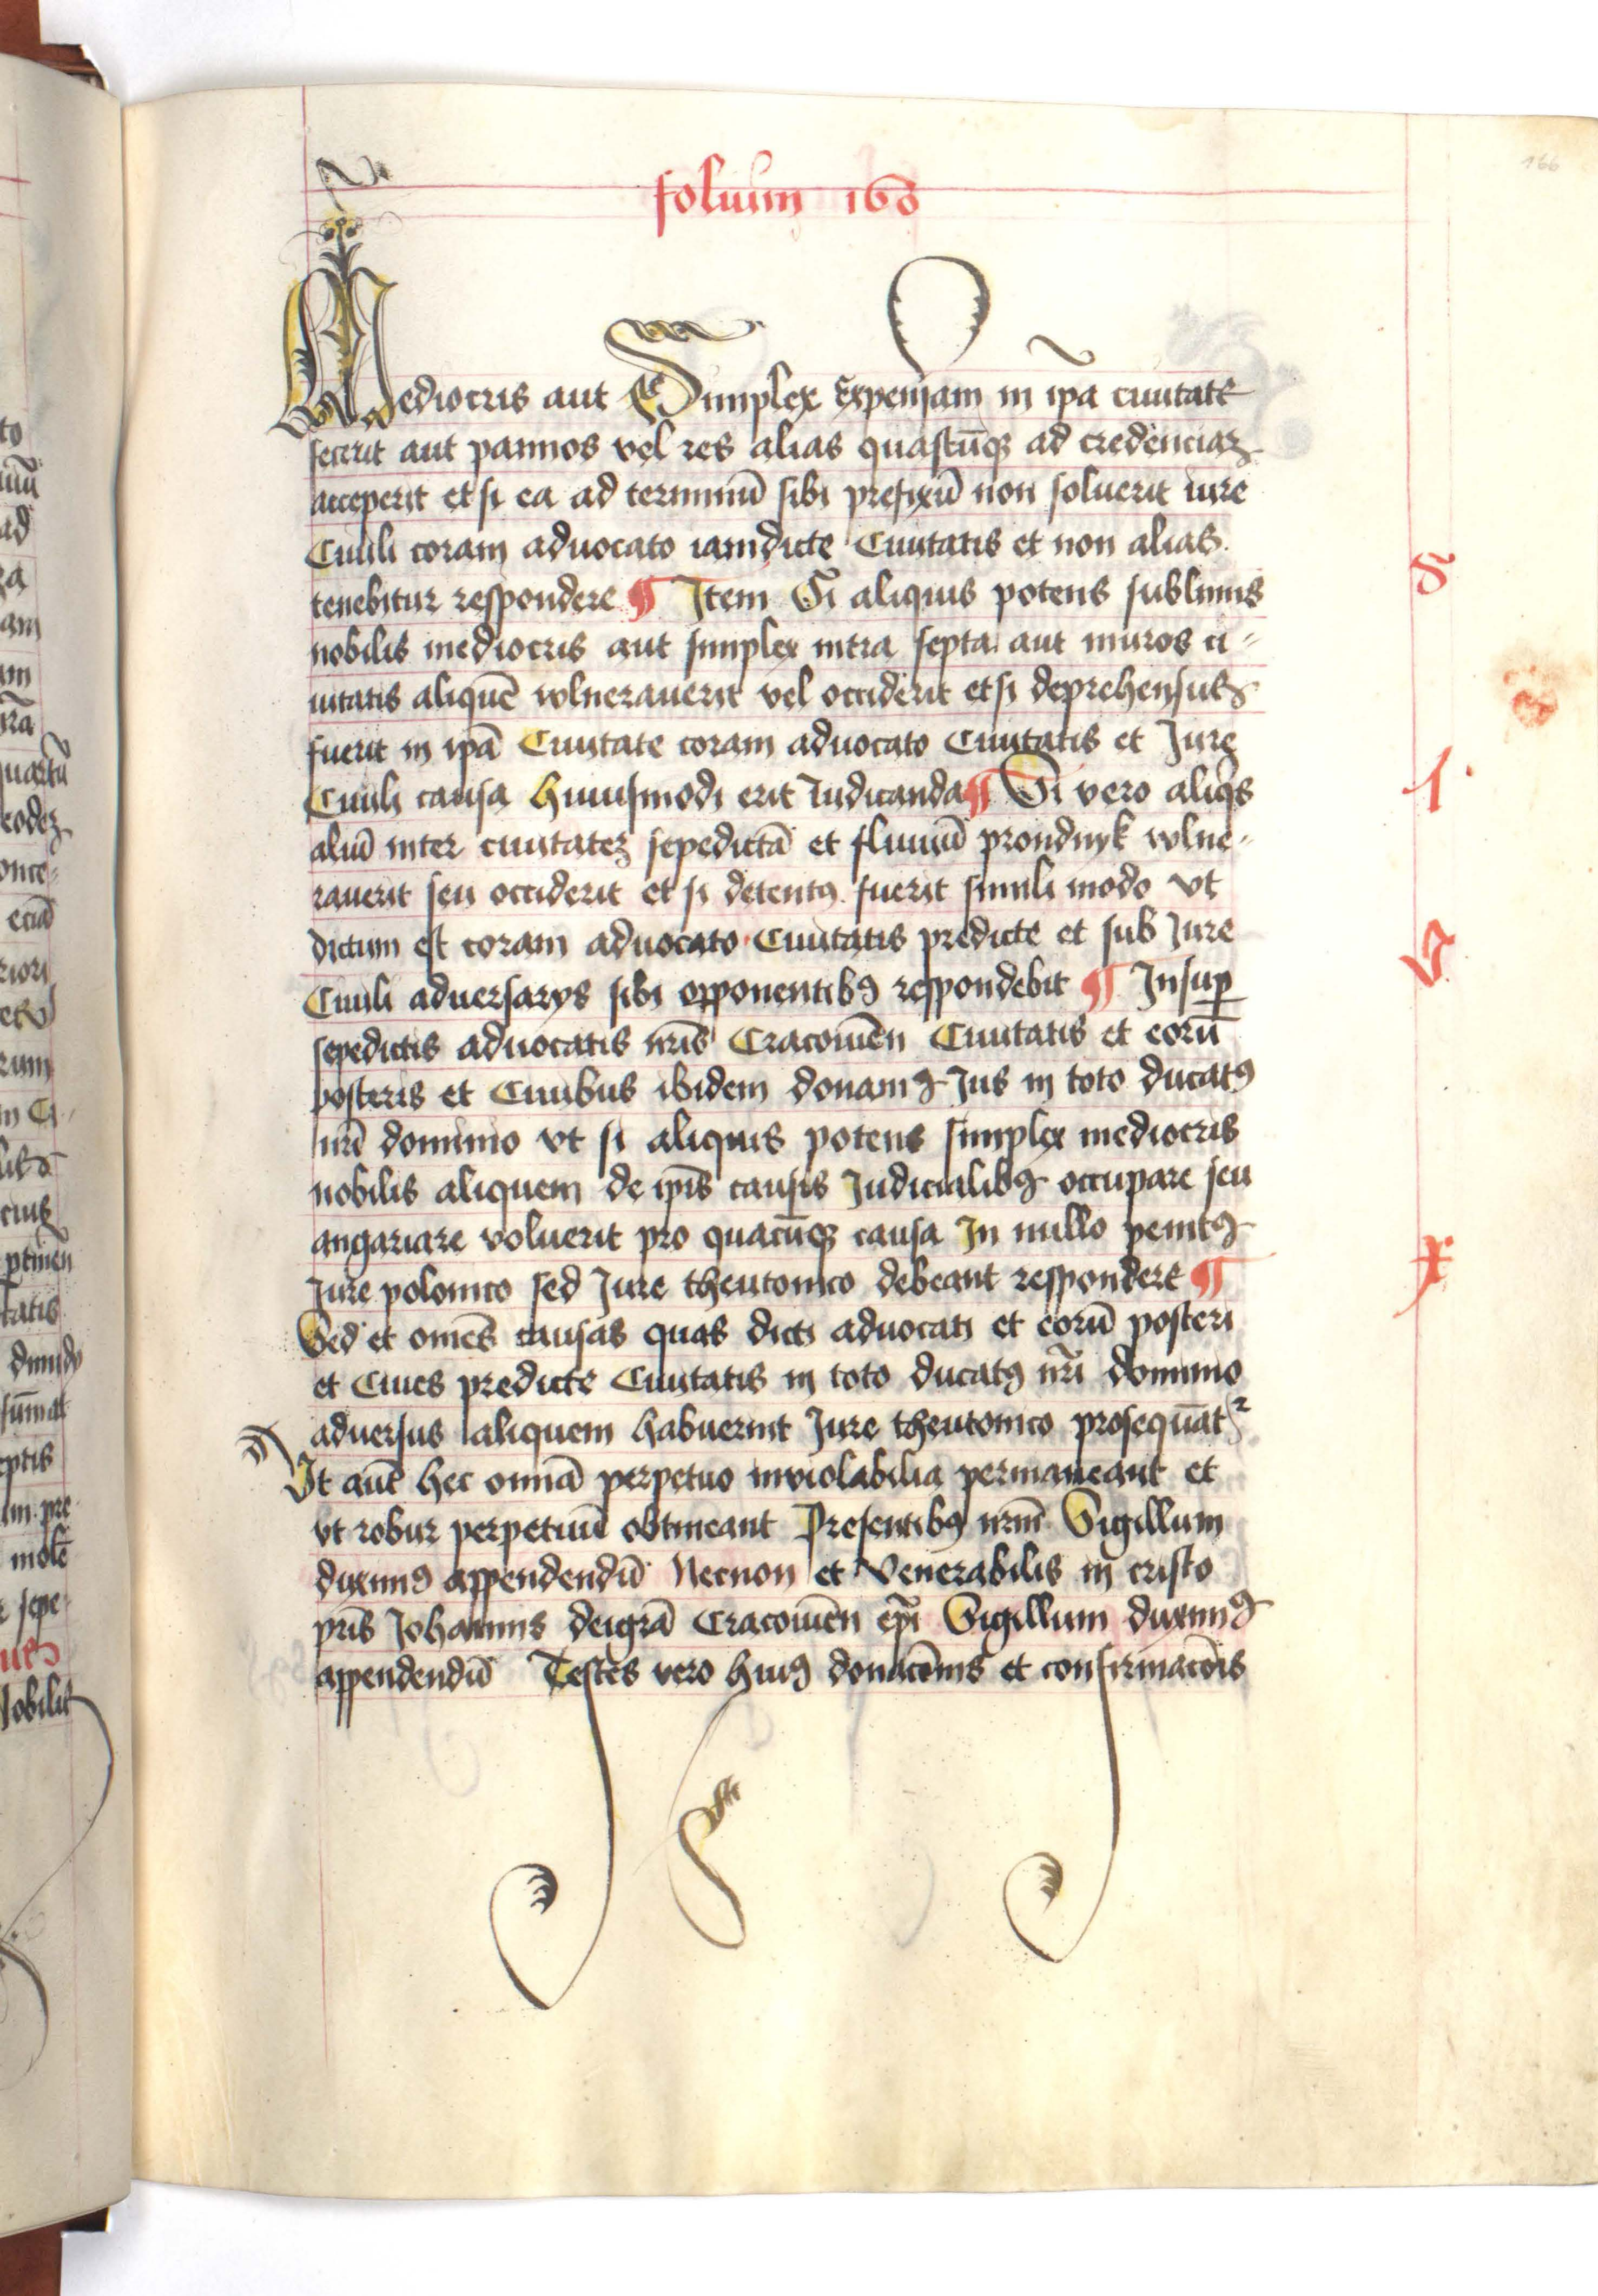 folium 168
Mediocris aut Simplex Expensam in ipa ciuitate
fecerit aut pannos vel res alias quascūqʒ ad credenciaʒ
acceperit et si ea ad terminū sibi prefixū non soluerit iure
Ciuili coram aduocato iamdicte Ciuitatis et non alias
tenebitur respondere ¶ Item Si aliquis potens sublimis
nobilis mediocris aut simplex intra septa aut muros ci-
uitatis aliquē volnerauerit vel occiderit et si deprehensus
fuerit in ipā Ciuitate coram aduocato Ciuitatis et Jure
Ciuili causa huiusmodi erit Iudicanda ¶ Si vero aliqs
aliū inter ciuitateʒ sepedictā et fluuiū prondnyk volne-
rauerit seu occiderit et si detentꝰ fuerit simili modo vt
dictum est coram aduocato Ciuitatis predicte et sub Jure
Ciuili aduersarys sibi opponentibꝰ respondebit ¶ Insuꝑ
sepedictis aduocatis nr̄is Cracouien̄ Ciuitatis et eorū
posteris et Ciuibus ibidem donamꝰ Jus in toto ducatꝰ
nr̄i dominio vt si aliquis potens simplex mediocris
nobilis aliquem de ip̄is causis Judicialibꝰ occupare seu
angariare voluerit pro quacūqʒ causa In nullo penitꝰ
Jure polonico sed Jure theutonico debeant respondere ¶
Sed et omēs causas quas dicti aduocati et eorū posteri
et Ciues predicte Ciuitatis in toto ducatꝰ nr̄i dominio
aduersus aliquem habuerint Jure theutonico prosequāt²
Vt aūt hec omiā perpetuo inviolabilia permaneant et
vt robur perpetuū obtineant Presentibꝰ nr̄m Sigillum
duximꝰ appendendū Necnon et Venerabilis in cristo
pr̄is Johannis deigrā Cracouien̄ ep̄i Sigillum duximꝰ
appendendū Testes vero huiꝰ donacōnis et confirmacōis
s
1
v
x
166